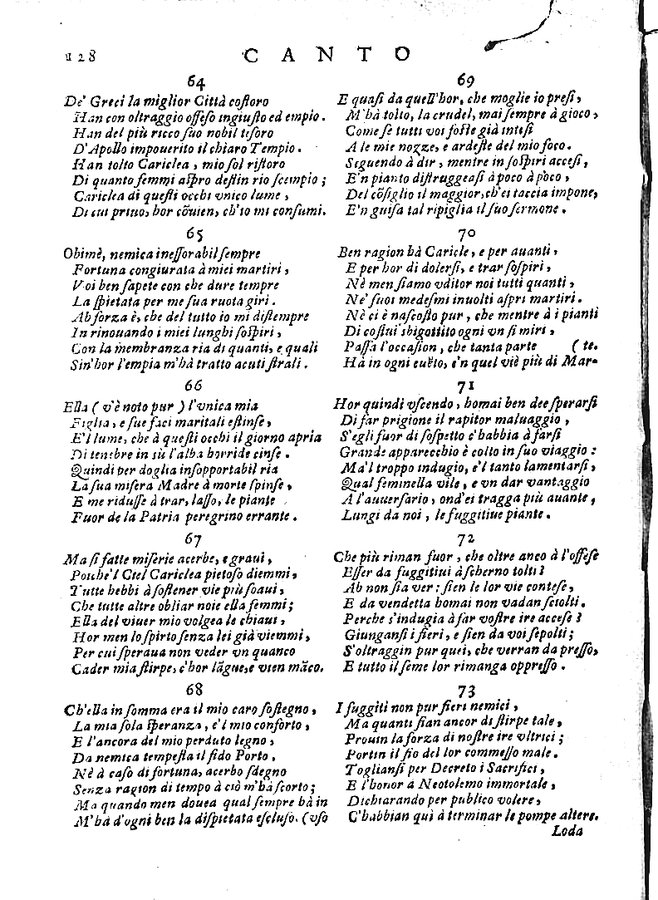 128
CANTO
64
De' Greci la miglior Città costoro
Han con oltraggio offeso ingiusto ed empio.
Han del più ricco suo nobil tesoro
D'Apollo impouerito il chiaro Tempio.
Han tolto Cariclea, mio sol ristoro
Di quanto femmi aspro destin rio scempio;
Cariclea di questi occhi vnico lume,
Di cui priuo, hor cōuien, ch'io mi consumi.
65
Ohimè, nemica inessorabil sempre
Fortuna congiurata à miei martiri,
Voi ben sapete con che dure tempre
La spietata per me sua ruota giri.
Ab forza è, che del tutto io mi distempre
In rinouando i miei lunghi sospiri,
Con la membranza ria di quanti, e quali
Sin'hor l'empia m'hà tratto acuti strali.
66
Ella (v'è noto pur) l'vnica mia
Figlia, e sue faci maritali estinse,
E'l lume, che à questi occhi il giorno apria
Di tenebre in sù l'alba horride cinse.
Quindi per doglia insopportabil ria
La sua misera Madre à morte spinse,
E me ridusse à trar, lasso, le piante
Fuor de la Patria peregrino errante.
67
Ma sì fatte miserie acerbe, e graui,
Poiche'l Ciel Cariclea pietoso diemmi,
Tutte hebbi à sostener vie più soaui,
Che tutte altre obliar noie ella femmi;
Ella del viuer mio volgea le chiaui,
Hor men lo spirto senza lei già viemmi,
Per cui speraua non veder vn quanco
Cader mia stirpe, e'hor lāgue, e vien māco.
68
Ch'ella in somma era il mio caro sostegno,
La mia sola speranza, e'l mio conforto,
E l'ancora del mio perduto legno,
Da nemica tempesta il fido Porto.
Nè à caso di fortuna, acerbo sdegno
Senza ragion di tempo à ciò m'hà scorto;
Ma quando men douea qual sempre hà in
M'hà d'ogni ben la dispietata escluso. (vso
69
E quasi da quell'hor, che moglie io presi,
M'hà tolto, la crudel, mai sempre à gioco,
Come se tutti voi foste già intesi
A le mie nozze, e ardeste del mio foco.
Seguendo à dir, mentre in sospiri accesi,
E'n pianto distruggeasi à poco à poco,
Del cōsiglio il maggior, ch'ei taccia impone,
E'n guisa tal ripiglia il suo sermone.
70
Ben ragion hà Caricle, e per auanti,
E per hor di dolersi, e trar sospiri,
Nè men siamo vditor noi tutti quanti,
Ne' suoi medesmi inuolti aspri martiri.
Nè ci è nascosto pur, che mentre à i pianti
Di costui sbigottito ogni vn si miri,
Passa l'occasion, che tanta parte (te.
Hà in ogni euēto, e'n quel viè più di Mar-
71
Hor quindi vscendo, homai ben dee sperarsi
Di far prigione il rapitor maluaggio,
S'egli fuor di sospetto c'habbia à farsi
Grande apparecchio è colto in suo viaggio:
Ma'l troppo indugio, e'l tanto lamentarsi,
Qual feminella vile, e vn dar vantaggio
A l'auuersario, ond'ei tragga più auante,
Lungi da noi, le fuggitiue piante.
72
Che più riman fuor, che oltre anco à l'offese
Esser da fuggitiui à scherno tolti?
Ab non sia ver: sien le lor vie contese,
E da vendetta homai non vadan sciolti.
Perche s'indugia à far vostre ire accese?
Giungansi i fieri, e sien da voi sepolti;
S'oltraggin pur quei, che verran da presso,
E tutto il seme lor rimanga oppresso.
73
I fuggiti non pur fieri nemici,
Ma quanti sian ancor di stirpe tale,
Prouin la forza di nostre ire vltrici;
Portin il fio del lor commesso male.
Togliansi per Decreto i Sacrifici,
E l'honor à Neotolemo immortale,
Dichiarando per publico volere,
C'habbian quì à terminar le pompe altere.
Loda